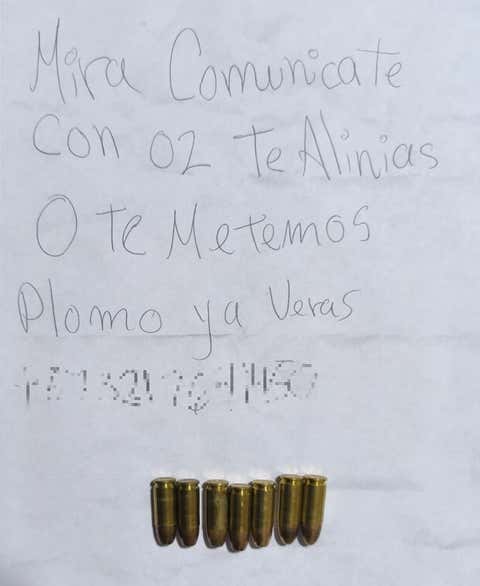 Mira Comunicate
Con 02 Te Alinias
O te Metemos
Plomo ya Veras